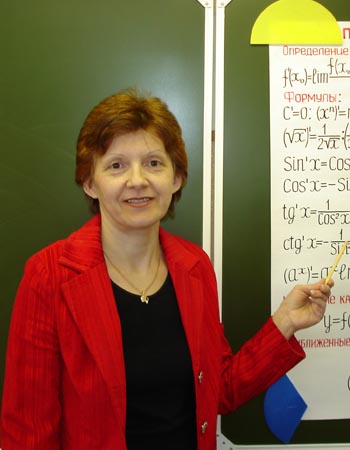 Определение
f'(x₀)=lim f(x₀
Формулы:
C'=0; (xⁿ)'=
(√x)'=1/2√x;
Sin'x=Cos
Cos'x=-Si
tg'x=1/Cos²x
ctg'x=-1/Si
(aˣ)'=
y=f(